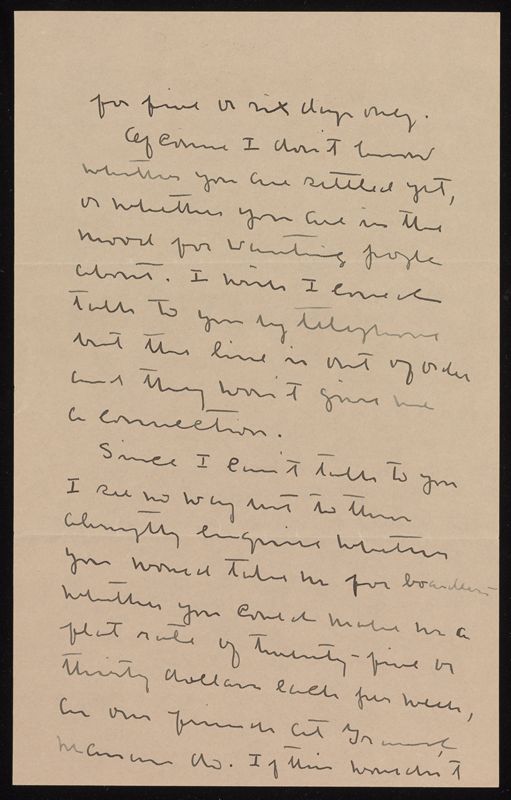 for five or six days only.
Of course I don't know
whether you are settled yet,
or whether you are in the
mood for wanting people
about. I wish I could
talk to you by telephone
but the line is out of order
and they won't give me
a connection.
Since I can't talk to you
I see no way but to thus
abruptly enquire whether
you would take us for boarders
whether you could make us a
flat rate of twenty-five or
thirty dollars each per week,
as our friends at
do. If this wouldn't